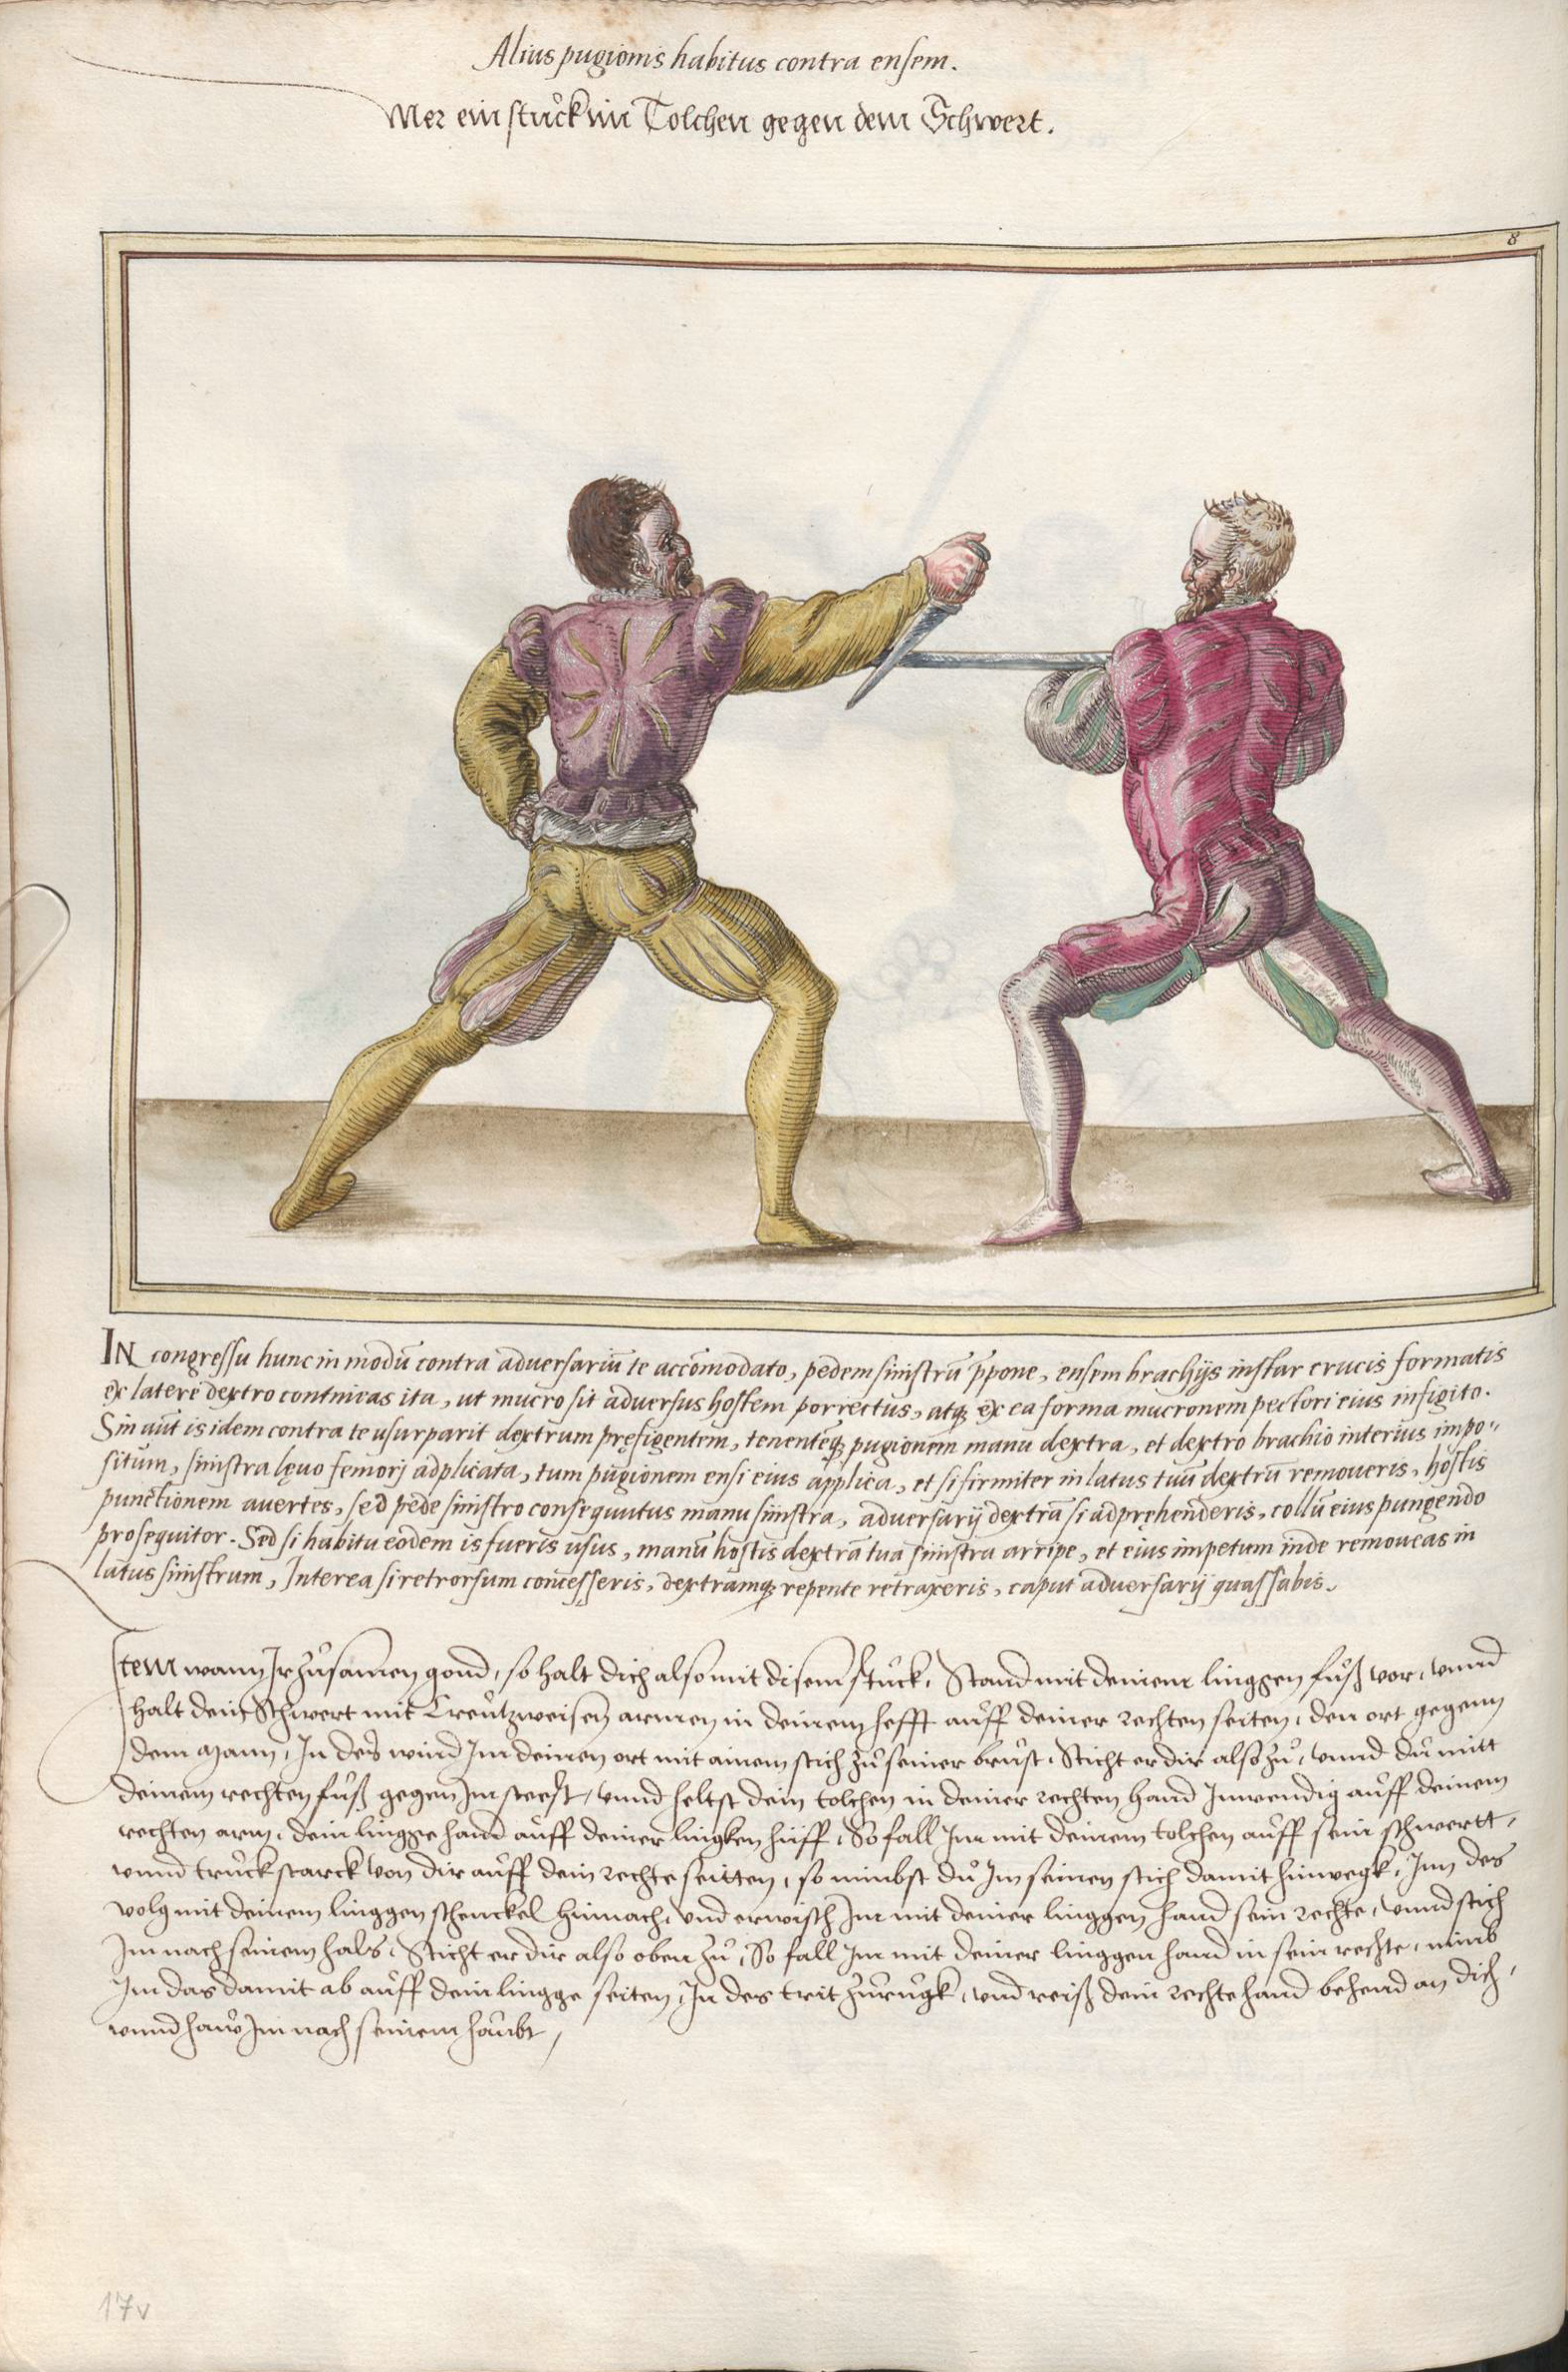 Alius pugionis habitus contra ensem.
Mer ein stůck im Tolchen gegen dem Schwert.
8
IN congressu hunc in modū contra adversariū te accōmodato, pedem sinistrū p̄pone, ensem brachijs instar crucis formatis
ex latere dextro contineas ita, ut mucro sit adversus hostem porrectus, atq̨ ex ea forma mucronem pectori eius infigito.
Sin aūt is idem contra te usurparit dextrum pręfigentem, tenentēq̨ pugionem manu dextra, et dextro brachio interius impo-
situm, sinistra lęvo femorj adplicata, tum pugionem ensi eius applica, et si firmiter in latus tuū dextrū removeris, hostis
punctionem avertes, sed pede sinistro consequutus manu sinistra, adversarij dextrā si adpręhenderis, collū eius pungendo
prosequitor. Sed si habitu eodem is fueris usus, manū hostis dextrā tua sinistra arripe, et eius impetum inde removeas in
latus sinistrum, Interea si retrorsum concesseris, dextramq̨ repente retraxeris, caput adversarij quassabis.
Item wann Jr zůsamen gond, so halt dich also mit disem stuck, Stand mit deinem linggen fůß vor, unnd
halt dein Schwert mit Creützweisen armen in deinem hefft auff deiner rechten seiten, den ort gegenn
dem mann, In des wind Im deinen ort mit ainem stich zů seiner brust, Sticht er dir also zů, unnd dů mitt
deinem rechten fůß gegen Im steest, unnd heltst dein tolchen in deiner rechten hand Inwendig auff deinem
rechten arm, dein lingge hand auff deiner lingken hüff, So fall Im mit deinem tolchen auff sein schwertt,
unnd truck starck von dir auff dein rechte seitten, so nimbst dů Im seinen stich damit hinwegk, Inn des
volg mit deinem linggen schenckel hinnach, und erwisch Im mit deiner linggen hand sein rechte, unnd stich
Im nach seinem hals, Sticht er dir also oben zů, So fall Im mit deiner linggen hand in sein rechte, nimb
Im das damit ab auff dein lingge seiten, In des trit zůrugk, und reiß dein rechte hand behend an dich,
unnd haw Im nach seinem haubt,
17v